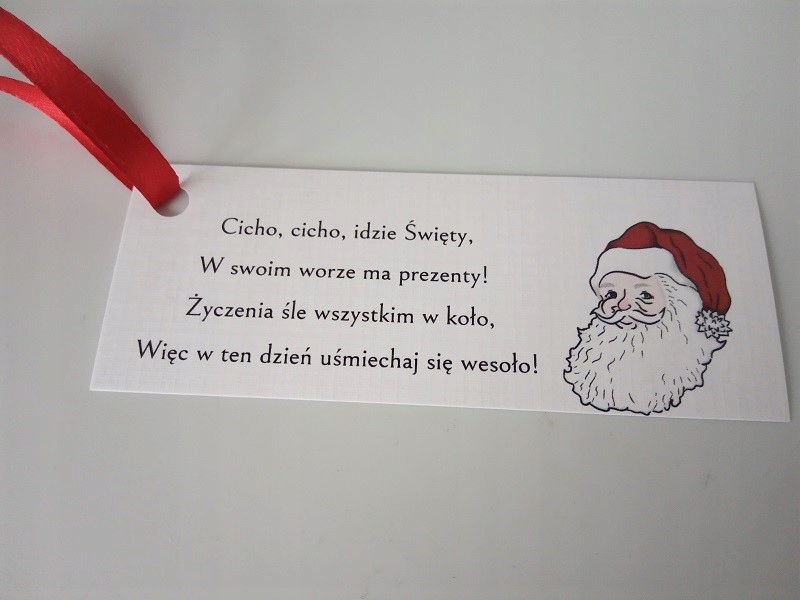 Cicho, cicho, idzie Święty,
W swoim worze ma prezenty!
Życzenia śle wszystkim w koło,
Więc w ten dzień uśmiechaj się wesoło!